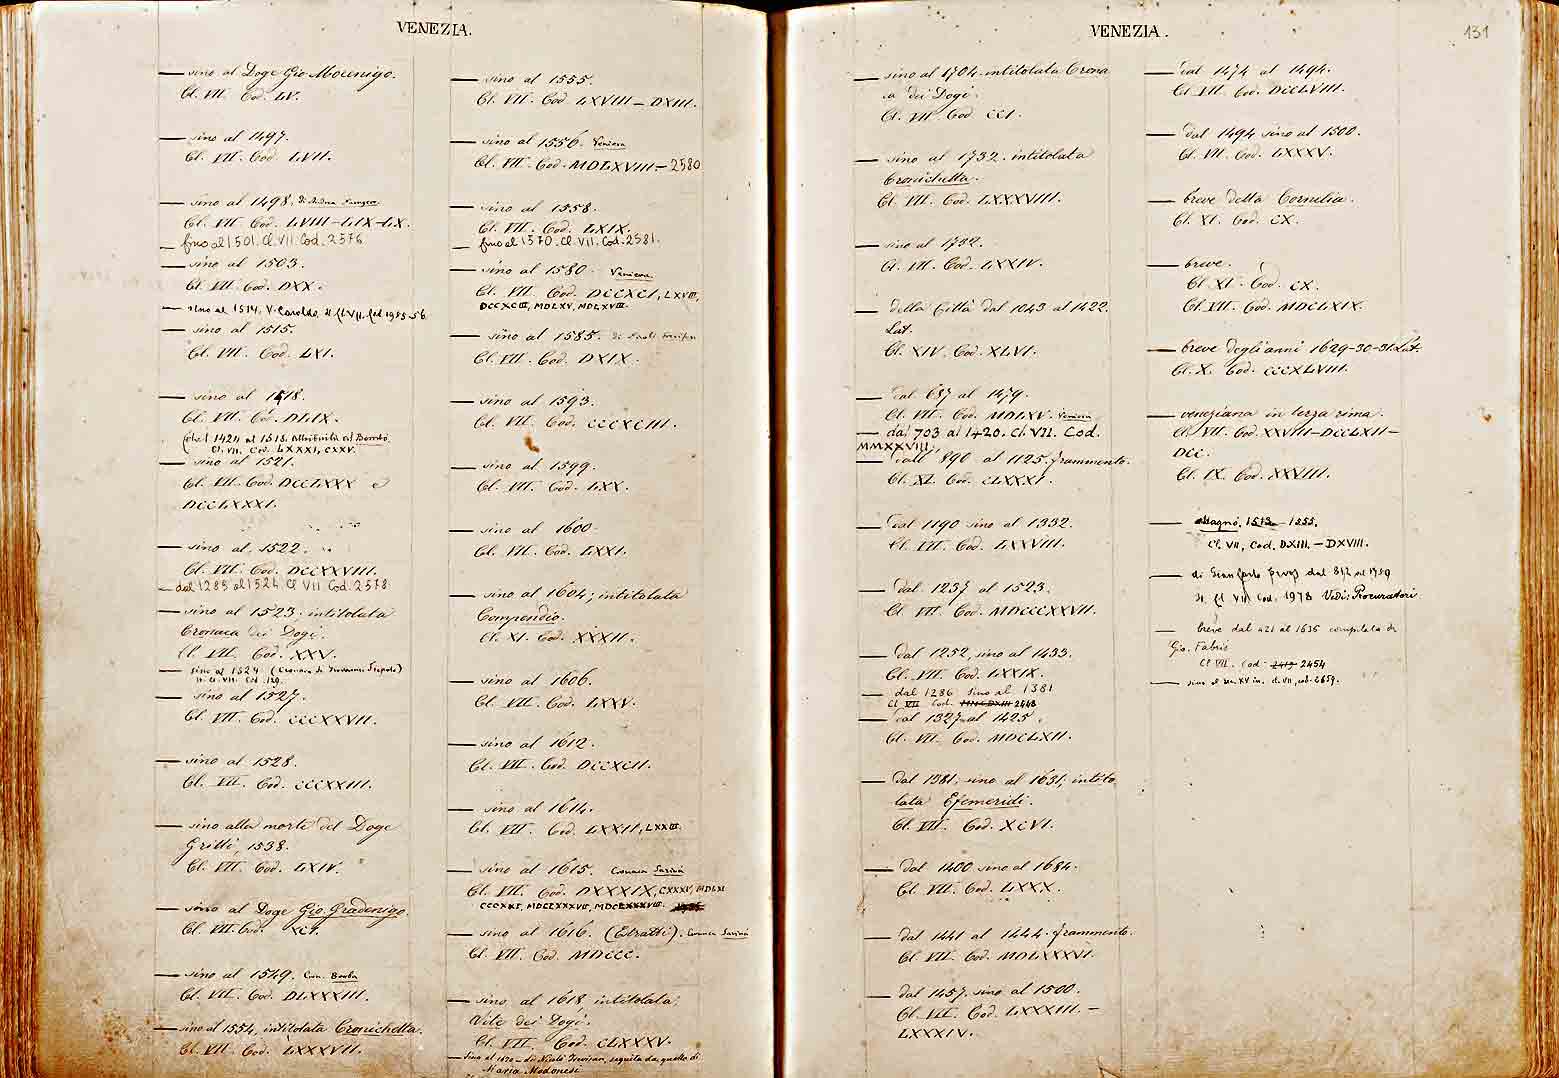 VENEZIA.
— sino al Doge Gio Mocenigo.
Cl. VII. Cod. LV.
— sino al 1497.
Cl. VII. Cod. LVII.
— sino al 1498.
Cl. VII. Cod. LVIII–LIX–LX.
— fino al 1501. Cl. VII. Cod. 2576
— sino al 1503.
Cl. VII. Cod. DXX.
— sino al 1514. V. Caroldo. It. Cl. VII. Cod 1985-56
— sino al 1515.
Cl. VII. Cod. LXI.
— sino al 1518.
Cl. VII. Co. DLIX.
(dal 1424 al 1518. Attribuita al Bembo.
Cl. VII. Cod. LXXXI, CXXV.
— sino al 1521.
Cl. VII. Cod. DCCLXXX e
DCCLXXXI.
— sino al 1522.
Cl. VII. Cod. DCCXXVIII.
— dal 1285 al 1524 Cl VII Cod. 2578
— sino al 1523; intitolata
Cronaca dei Dogi.
Cl. VII. Cod. XXV.
— sino al 1524 (Cronaca di Giovanni Tiepolo)
It. Cl. VII. Cod. 129.
— sino al 1527.
Cl. VII. Cod. CCCXXVII.
— sino al 1528.
Cl. VII. Cod. CCCXXIII.
— sino alla morte del Doge
Gritti, 1538.
Cl. VII. Cod. LXIV.
— sino al Doge Gio. Gradenigo.
Cl. VII. Cod. XCI.
— sino al 1549. Cron. Barba
Cl. VII. Cod. DLXXXIII.
— sino al 1554, intitolata Cronichetta.
Cl. VII. Cod. LXXXVII.
— sino al 1555.
Cl. VII. Cod. LXVIII – DXIII.
— sino al 1556. Veniera
Cl. VII. Cod. MDLXVIII. – 2580
— sino al 1558.
Cl. VII. Cod. LXIX.
— fino al 1570. Cl. VII. Cod. 2581.
— sino al 1580. Veniera.
Cl. VII. Cod. DCCXCI, LXVIII,
DCCXCIII, MDLXV, MDLXVIII.
— sino al 1585.
Cl. VII. Cod. DXIX.
— sino al 1593.
Cl. VII. Cod. CCCXCIII.
— sino al 1599.
Cl. VII. Cod. LXX.
— sino al 1600
Cl. VII. Cod. LXXI.
— sino al 1604; intitolata
Compendio.
Cl. XI. Cod. XXXII.
— sino al 1606.
Cl. VII. Cod. LXXV.
— sino al 1612.
Cl. VII. Cod. DCCXCII.
— sino al 1614.
Cl. VII. Cod. LXXII, LXXIII.
— sino al 1615. Cronaca Savina
Cl. VII. Cod. DXXXIX, CXXXV, MDLXI
CCCXXI, MDCLXXXVII, MDCLXXXVIII.
— sino al 1616. (Estratti). Cronaca Savina
Cl. VII. Cod. MDCCC.
— sino al 1618 intitolata:
Vite dei Dogi.
Cl. VII. Cod. CLXXXV.
— sino al 1620 – di Nicolò Trevisan, seguita da quella di
Maria Modonesi
VENEZIA.
131
— sino al 1704. intitolata Crona
ca dei Dogi.
Cl. VII. Cod CCI.
— sino al 1732. intitolata
Cronichetta.
Cl. VII. Cod. LXXXVIII.
— sino al 1732.
Cl. VII. Cod. LXXIV.
— della Città dal 1043 al 1422.
Lat.
Cl. XIV. Cod. XLVI.
— dal 687 al 1479.
Cl. VII. Cod. MDLXV. Veniera
— dal 703 al 1420. Cl. VII. Cod.
MMXXVIII.
— dall' 890 al 1125. frammento.
Cl. XI. Cod. CLXXXI.
— dal 1190 sino al 1332.
Cl. VII. Cod. LXXVIII.
— dal 1237 al 1523.
Cl. VII. Cod. MDCCCXXVII.
— dal 1252, sino al 1433.
Cl. VII. Cod. LXXIX.
— dal 1286 sino al 1381
Cl VII Cod. 2448
— dal 1327 al 1425.
Cl. VII. Cod. MDCLXII.
— dal 1381. sino al 1631; intito
lata Efemeridi.
Cl. VII. Cod. XCVI.
— dal 1400 sino al 1684.
Cl. VII. Cod. LXXX.
— dal 1441 al 1444. frammento.
Cl. VII. Cod. MDLXXXVI.
— dal 1457. sino al 1500.
Cl. VII. Cod. LXXXIII. –
LXXXIV.
— dal 1474 al 1494.
Cl. VII. Cod. DCCLVIII.
— dal 1494 sino al 1500.
Cl. VII. Cod. LXXXV.
— breve detta Cornelia.
Cl. XI. Cod. CX.
— breve.
Cl. XI. Cod. CX.
Cl. VII. Cod. MDCLXIX.
— breve degli anni 1629-30-31. Lat.
Cl. X. Cod. CCCXLVIII.
— veneziana in terza rima.
Cl. VII. Cod. XXVIII – DCCLXII –
DCC.
Cl. IX. Cod. XXVIII.
— Magno. 1513 – 1555.
Cl. VII, Cod. DXIII. – DXVIII.
It. Cl VII Cod. 1978 Vedi: Procuratori.
— breve dal 421 al 1636 compilata da
Gio. Fabris
Cl VII. Cod. 2413 2454
— sino al sec. XV in. Cl. VII, cod. 2659.